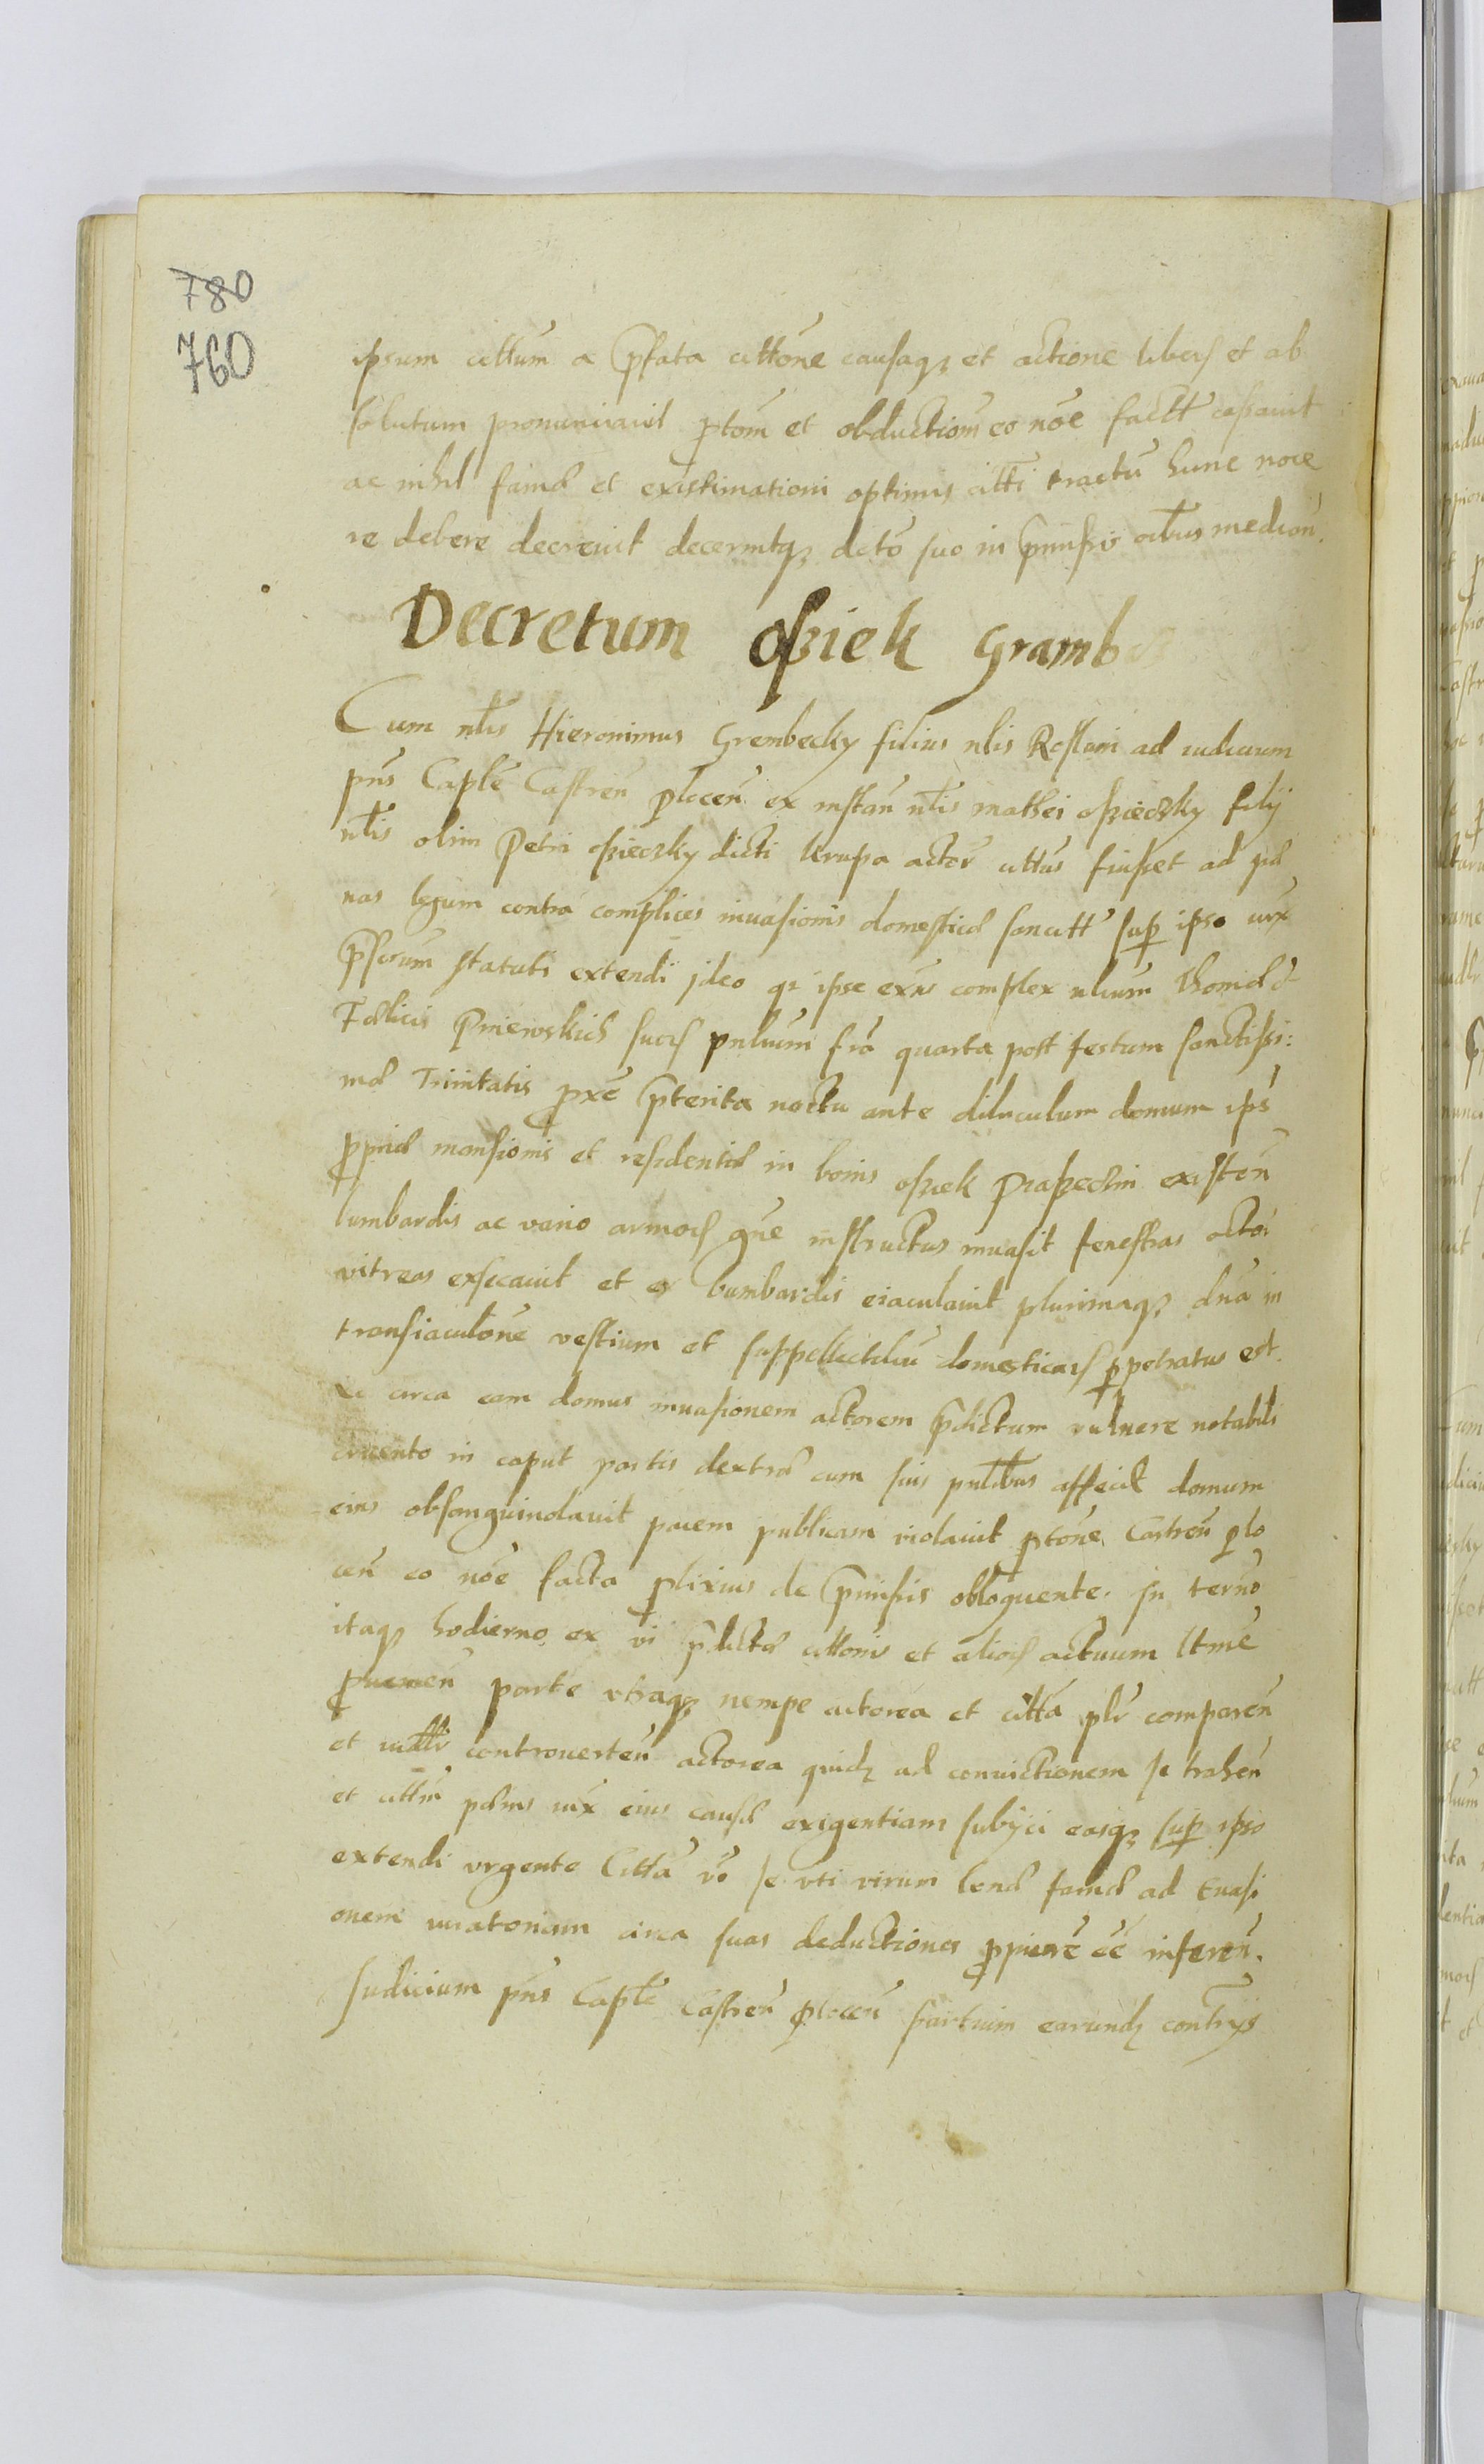 780
760
ipsum cittum a pfata cittone causaqȝ et actione liberꝭ et ab
solutum pronunciavit ptom et obductiom eo noe factt cassauit
ac nihil famæ et existimationi optimis citti tractu hunc noce
re debere decreuit decernitqȝ dcto suo in pmissis oibus median.
Decretum Osziek Gramb
Cum nlis Hieronimus Grembecky filius nlis Roslani ad iudicium
pns Caple Castren plocen ex instan nlis mathei osziecʒky filij
nlis olim Petri osziecʒky dicti krupa actor cittus fuisset ad pæ
nas legum contra complices inuasionis domesticæ sancitt sup ipso iux
pscrum statuti extendi ideo qȝ ipse exns complex nlium Thomæ et
Fælicis Pniewskich suorꝭ pnlium fra quarta post festum sanctissi:
mæ Trinitatis pxe pterita noctu ante diluculum domum ips
ppriæ mansionis et residentiæ in bonis osziek Praszecʒki existen
bumbardis ac vario armorꝭ gne instructus inuasit fenestras actor
vitreas exsecauit et ex bumbardis eiaculauit plurimaqȝ dna in
transiaculone vestium et suppellectiliu domesticarꝭ ppetratus est.
Ac circa eam domus inuasionem actorem pdictum vulnere notabili
cruento in caput partis dextræ cum suis pnlibus affecit domum
eius obsanguinolauit pacem publicam violauit ptone Castren plo
cen eo noe facta plixius de pmissis obloquente. In terno
itaqȝ hodierno ex vi pdictæ cittonis et aliorꝭ actuum ltme
puenien parte vtraqȝ nempe actorea et citta plr comparen
et iudllr controuerten actorea quidȝ ad conuictionem se trahen
et cittu pænis iux eius causæ exigentiam subijci easqȝ sup ipso
extendi vrgente Citta vo se vti virum bonæ famæ ad Euasi
onem iuratoriam circa suas deductiones ppiore ee inferen.
Iudicium pns Caple Castren plocen partium earundȝ contrijs